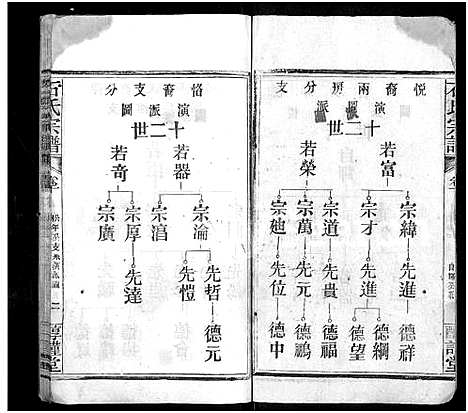 悅裔兩房分支
演派圖
十二世
若富
若榮
宗緯
宗才
宗萬
宗
先進
先進
先貴
先元
先位
德祥
德綱
德望
德福
德鵬
德中
石氏宗譜
卷
恪裔支分
演派圖
十二世
若器
若奇
宗淪
宗滔
宗厚
宗廣
先哲
先愷
先達
德元
石氏宗譜
卷